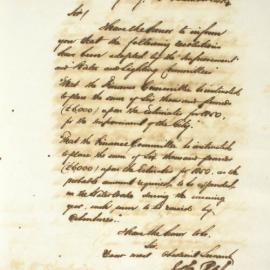 Sir,
I have the honor to inform
you that the following resolutions
have been adopted by the Improvement
and Water and Lighting Committees:
"That the Finance Committee be instructed
to place the sum of Six thousand pounds
(£6000) upon the Estimates for 1880,
for the improvement of the City."
"That the Finance Committee be instructed
to place the sum of Six thousand pounds
(£6000) upon the Estimates for 1880, as the
probable amount required, to be expended
on the Water Works during the ensuing
year, such sum to be raised by
Debentures."
I have the honor to be,
Sir,
Your most obedient Servant